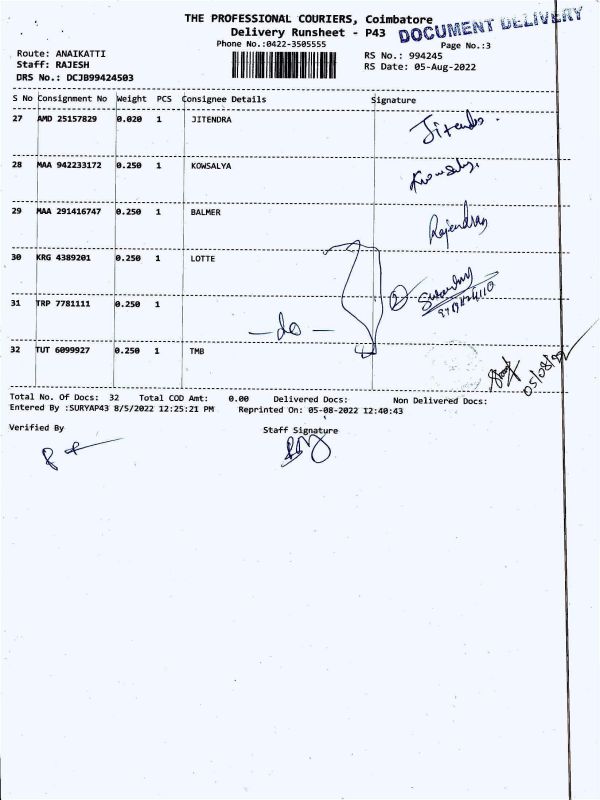 THE PROFESSIONAL COURIERS, Coimbatore
DOCUMENT DELIVERY
Delivery Runsheet - P43
Phone No.:0422-3505555
Page No.:3
Route: ANAIKATTI
RS No.: 994245
Staff: RAJESH
RS Date: 05-Aug-2022
DRS No.: DCJB99424503
S No Consignment No Weight PCS Consignee Details Signature
27 AMD 25157829 0.020 1 JITENDRA Jitendra.
28 MAA 942233172 0.250 1 KOWSALYA Kowsalya
29 MAA 291416747 0.250 1 BALMER Rajendran
30 KRG 4389201 0.250 1 LOTTE
31 TRP 7781111 0.250 1
— do —
32 TUT 6099927 0.250 1 TMB
05/08/22
Total No. Of Docs: 32 Total COD Amt: 0.00 Delivered Docs: Non Delivered Docs:
Entered By :SURYAP43 8/5/2022 12:25:21 PM Reprinted On: 05-08-2022 12:40:43
Verified By Staff Signature